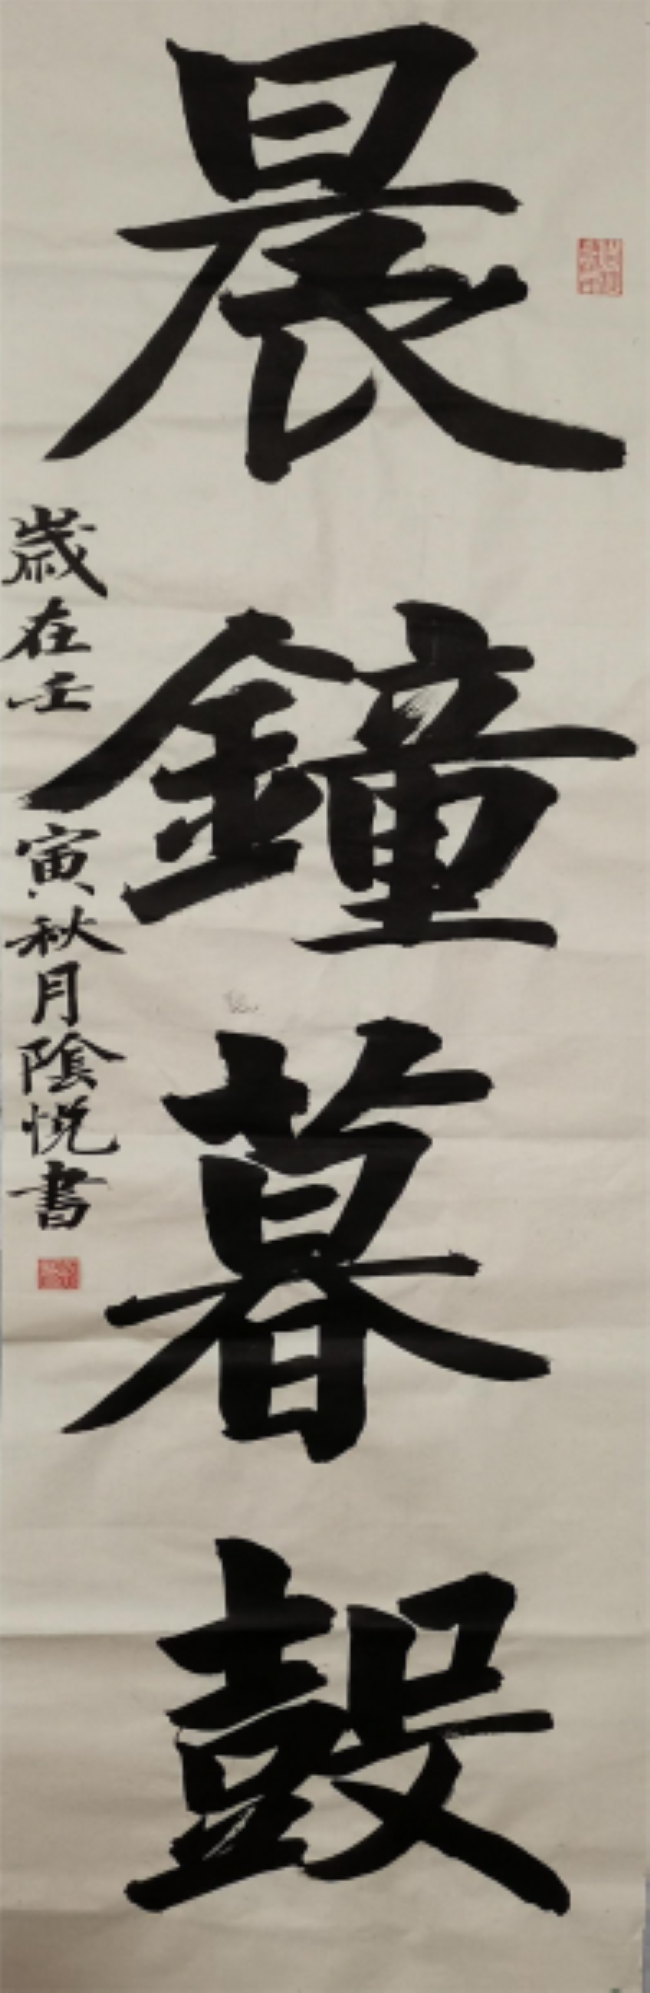 晨鐘暮鼓
歲在壬寅秋月陰悅書